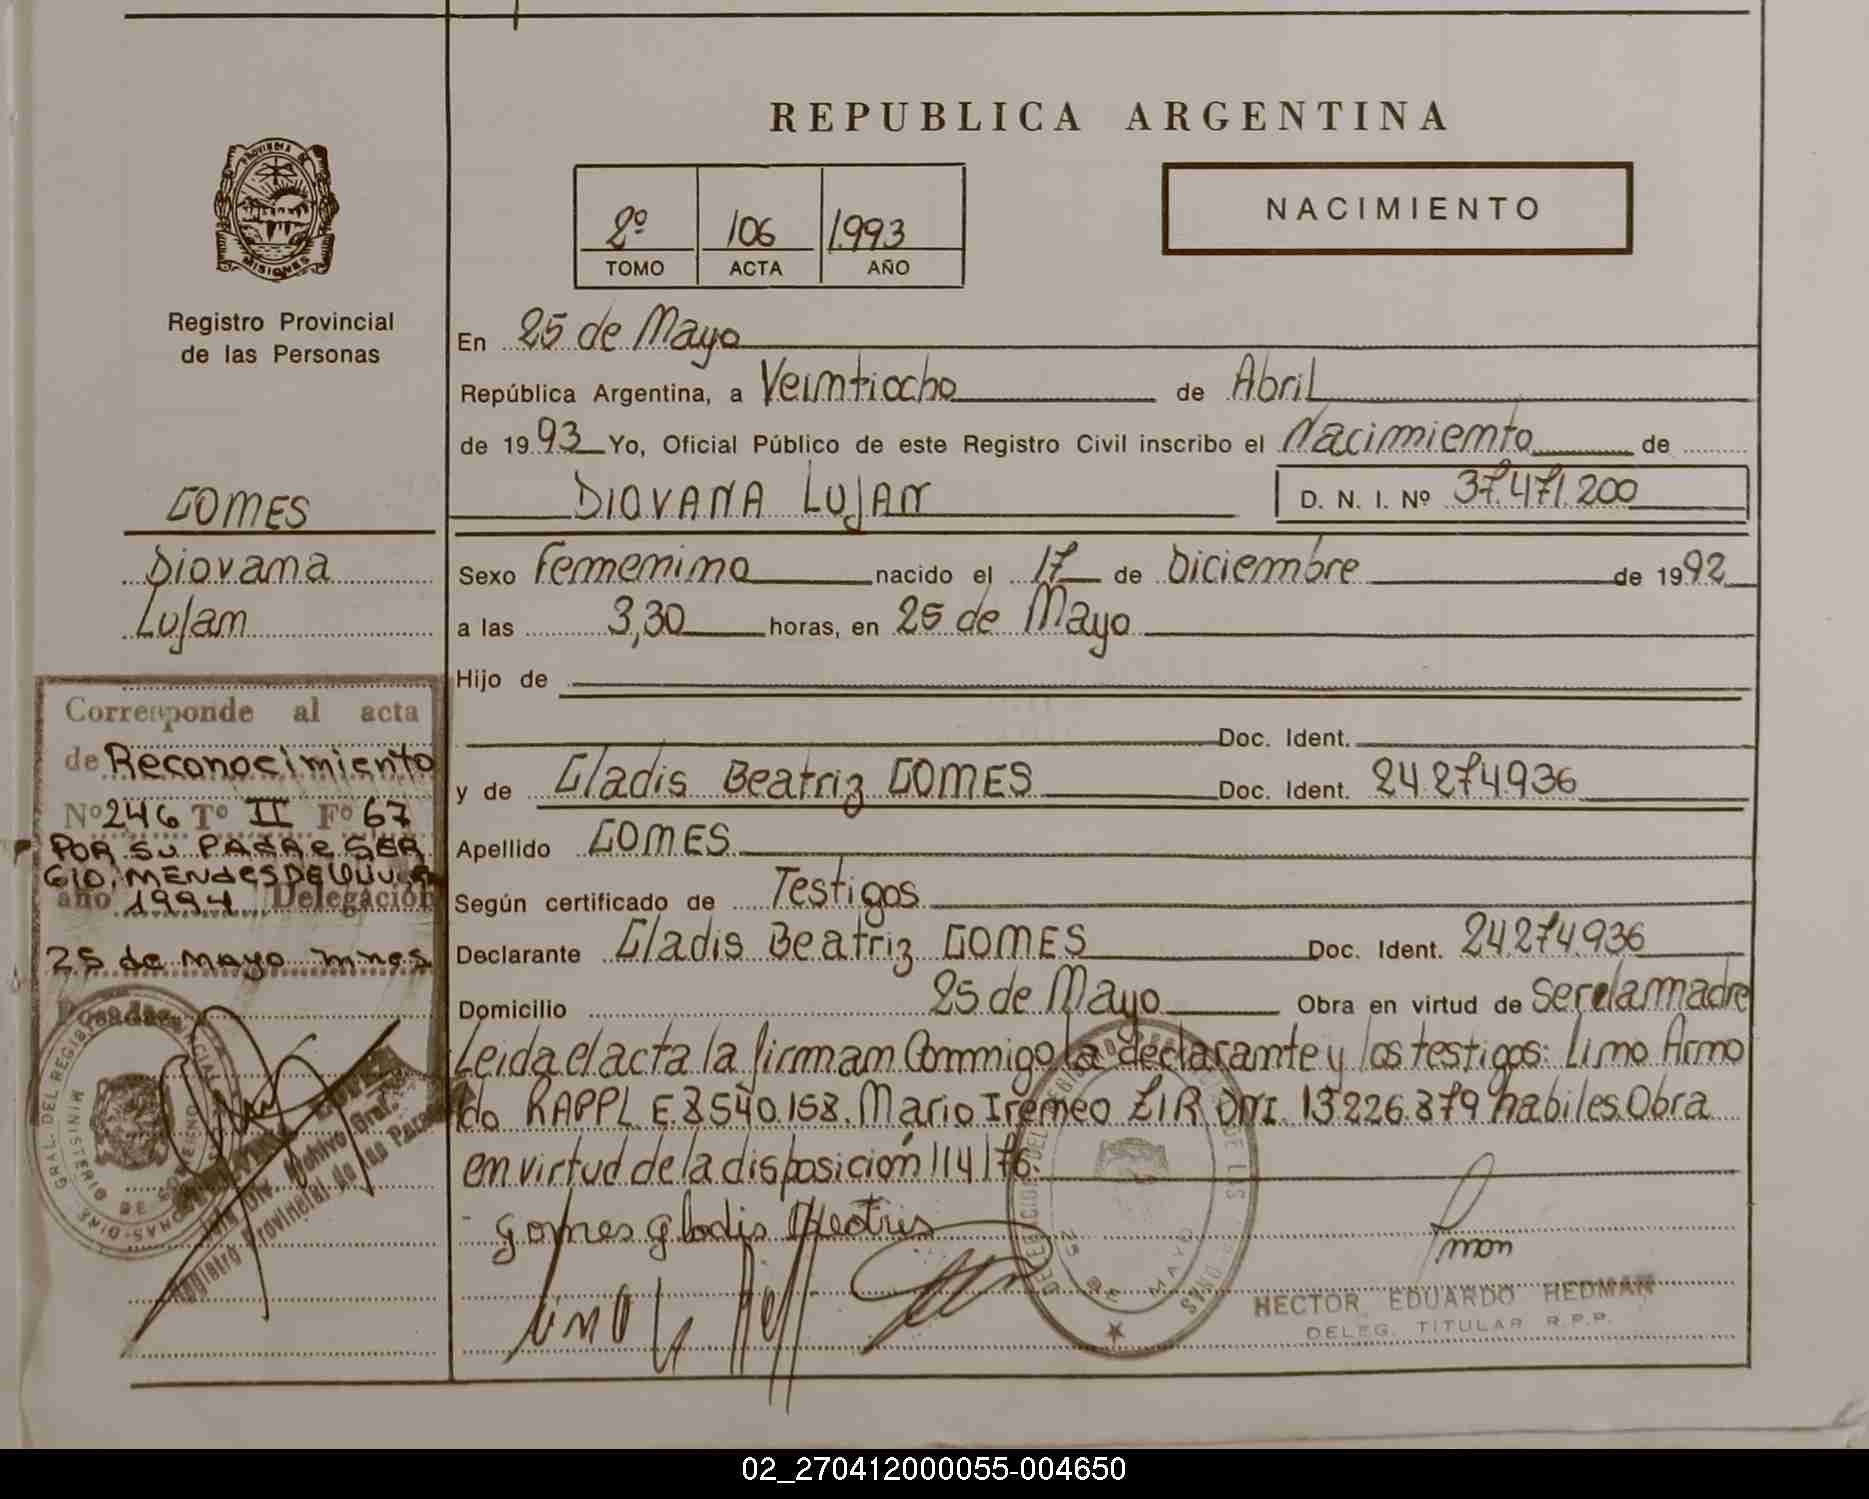 REPUBLICA ARGENTINA
PROVINCIA DE
MISIONES
Registro Provincial
de las Personas
2º 106 1.993
TOMO ACTA AÑO
NACIMIENTO
En 25 de Mayo
República Argentina, a Veintiocho de Abril
de 19 93 Yo, Oficial Público de este Registro Civil inscribo el Nacimiento de
DIOVANA LUJAN
D. N. I. Nº 37.471.200
GOMES
Diovana
Lujam
Sexo Femenino nacido el 17 de Diciembre de 19 92
a las 3,30 horas, en 25 de Mayo
Hijo de
Doc. Ident.
y de Gladis Beatriz GOMES Doc. Ident. 24.274.936
Apellido GOMES
Según certificado de Testigos
Declarante Gladis Beatriz GOMES Doc. Ident. 24.274.936
Domicilio 25 de Mayo Obra en virtud de ser la madre
Leida el acta la firman Conmigo la declarante y los testigos: Lino Arno
do RAPPL E8540.158. Mario Ireneo ZIR DNI. 13.226.879 habiles. Obra
en virtud de la disposición 114/76.
Gomes Gladis Beatris
HECTOR EDUARDO HEDMAN
DELEG. TITULAR R.P.P.
Corresponde al acta
de Reconocimiento
Nº 246 Tº II Fº 67
POR SU PADRE SER
GIO, MENDES DE
año 1994 Delegación
25 de mayo mnes
Posadas
02_270412000055-004650